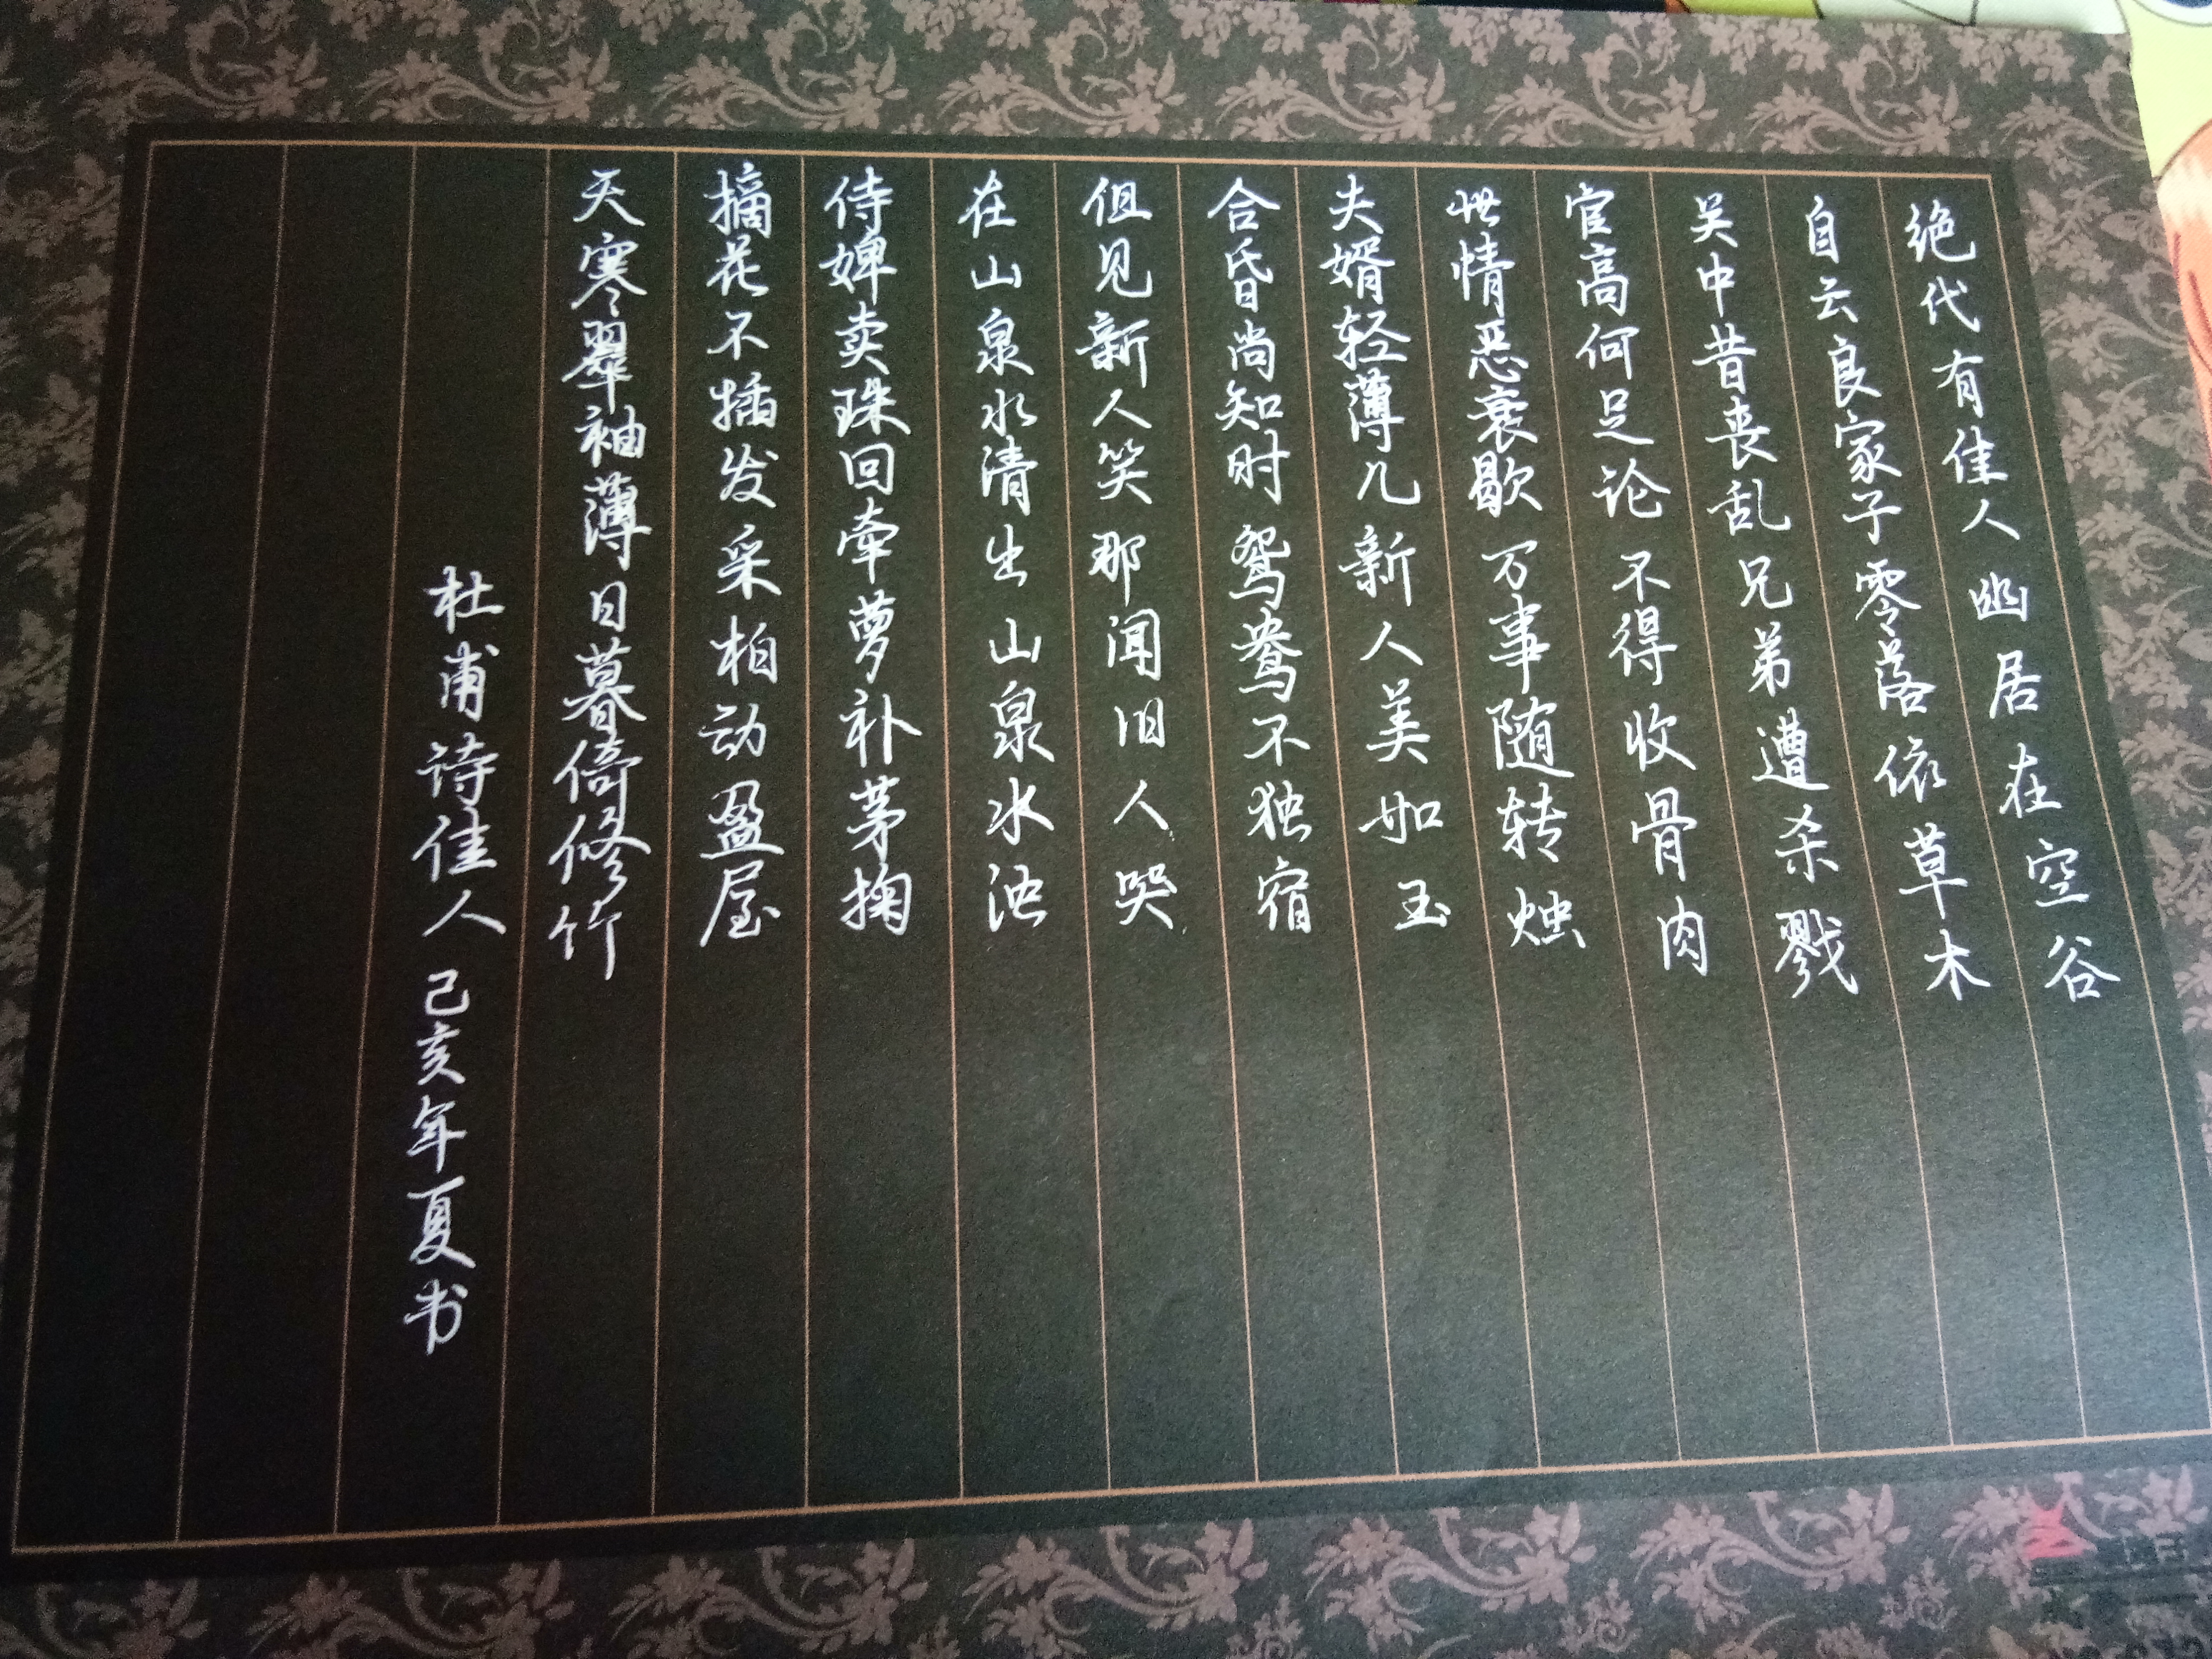 绝代有佳人幽居在空谷
自云良家子零落依草木
吴中昔丧乱兄弟遭杀戮
官高何足论不得收骨肉
世情恶衰歇万事随转烛
夫婿轻薄儿新人美如玉
合昏尚知时鸳鸯不独宿
但见新人笑那闻旧人哭
在山泉水清出山泉水浊
侍婢卖珠回牵萝补茅掬
摘花不插发采柏动盈屋
天寒翠袖薄日暮倚修竹
杜甫诗佳人 己亥年夏书